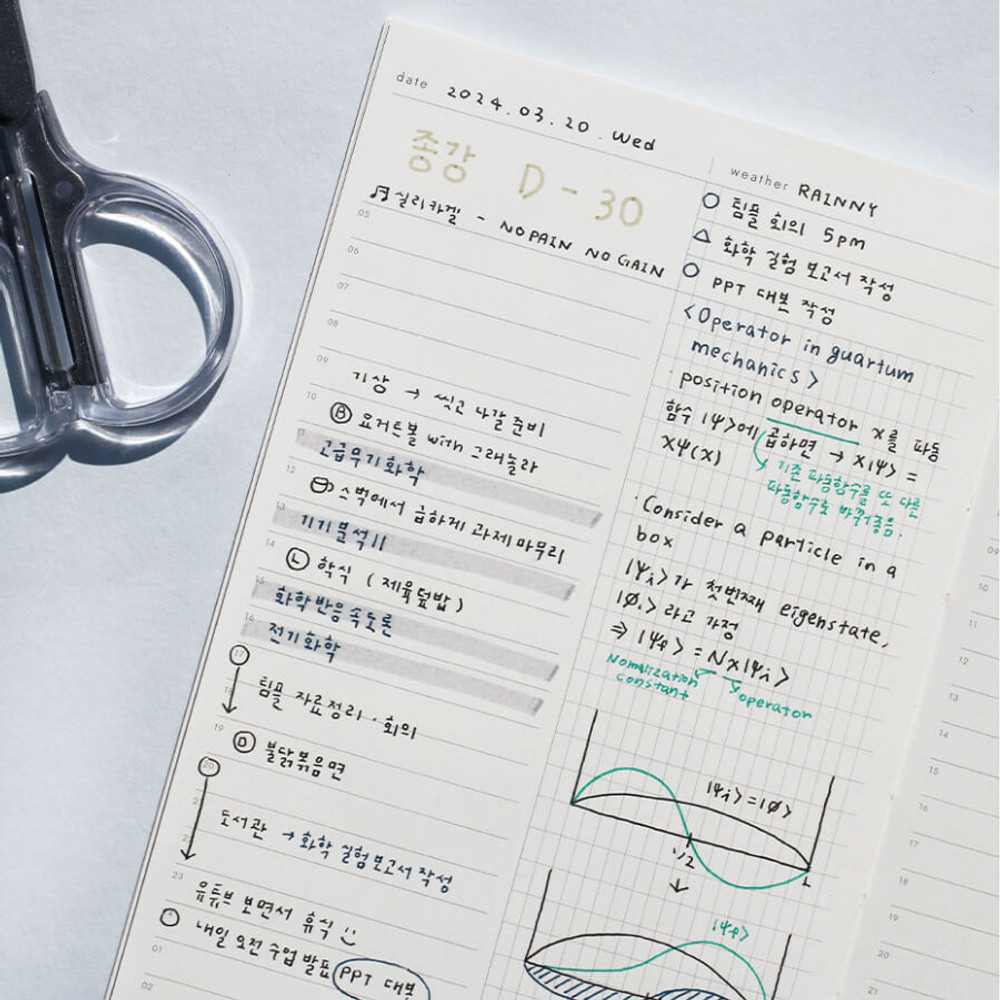 date 2024.03.20. Wed
종강 D-30
실리카겔 - NO PAIN NO GAIN
05
06
07
08
09
기상 → 씻고 나갈 준비
10
B 요거트볼 with 그래놀라
고급무기화학
12
스벅에서 급하게 과제 마무리
13
기기분석 II
14
L 학식 (제육덮밥)
15
화학반응속도론
16
전기화학
17
18
팀플 자료정리·회의
19
D 불닭볶음면
20
도서관 → 화학 실험 보고서 작성
23
유튜브 보면서 휴식
내일 오전 수업 발표 PPT 대본
01
02
weather RAINNY
팀플 회의 5pm
화학 실험 보고서 작성
PPT 대본 작성
<Operator in quartum
mechanics>
· position operator x를 파동
함수 |ψ>에 곱하면 → x|ψ> =
xψ(x)
기존 파동함수를 또 다른
파동함수로 바꿔줌.
· Consider a particle in a
box
|ψi>가 첫번째 eigenstate,
|Ø.>라고 가정
⇒ |ψf> = Nx|ψi>
Nomalization
constant
operator
|ψi>=|Ø>
1/2
L
↓
|ψf>
09
10
11
12
13
14
15
16
17
18
19
20
21